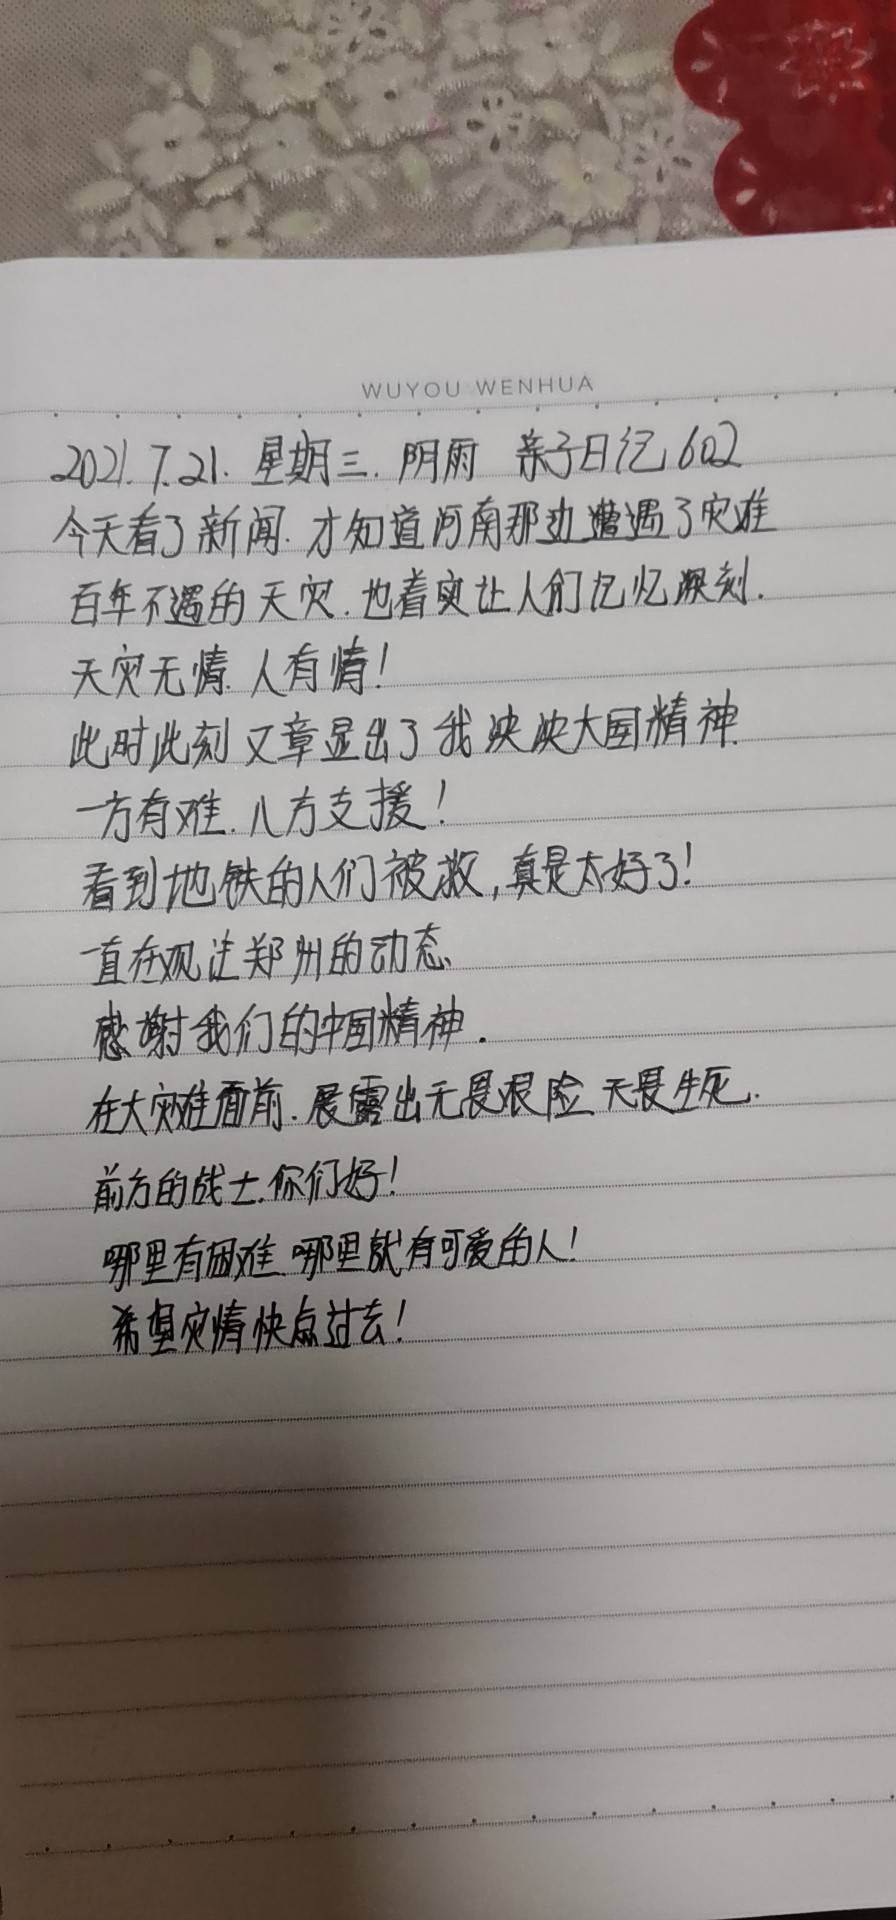 WUYOU WENHUA
2021.7.21.星期三.阴雨 亲子日记602
今天看了新闻.才知道河南那边遭遇了灾难
百年不遇的天灾.也着实让人们记忆深刻.
天灾无情.人有情!
此时此刻又章显出了我泱泱大国精神.
一方有难.八方支援!
看到地铁的人们被救,真是太好了!
一直在观注郑州的动态
感谢我们的中国精神.
在大灾难面前.展露出无畏艰险、无畏生死.
前方的战士.你们好!
哪里有困难.哪里就有可爱的人!
希望灾情快点过去!